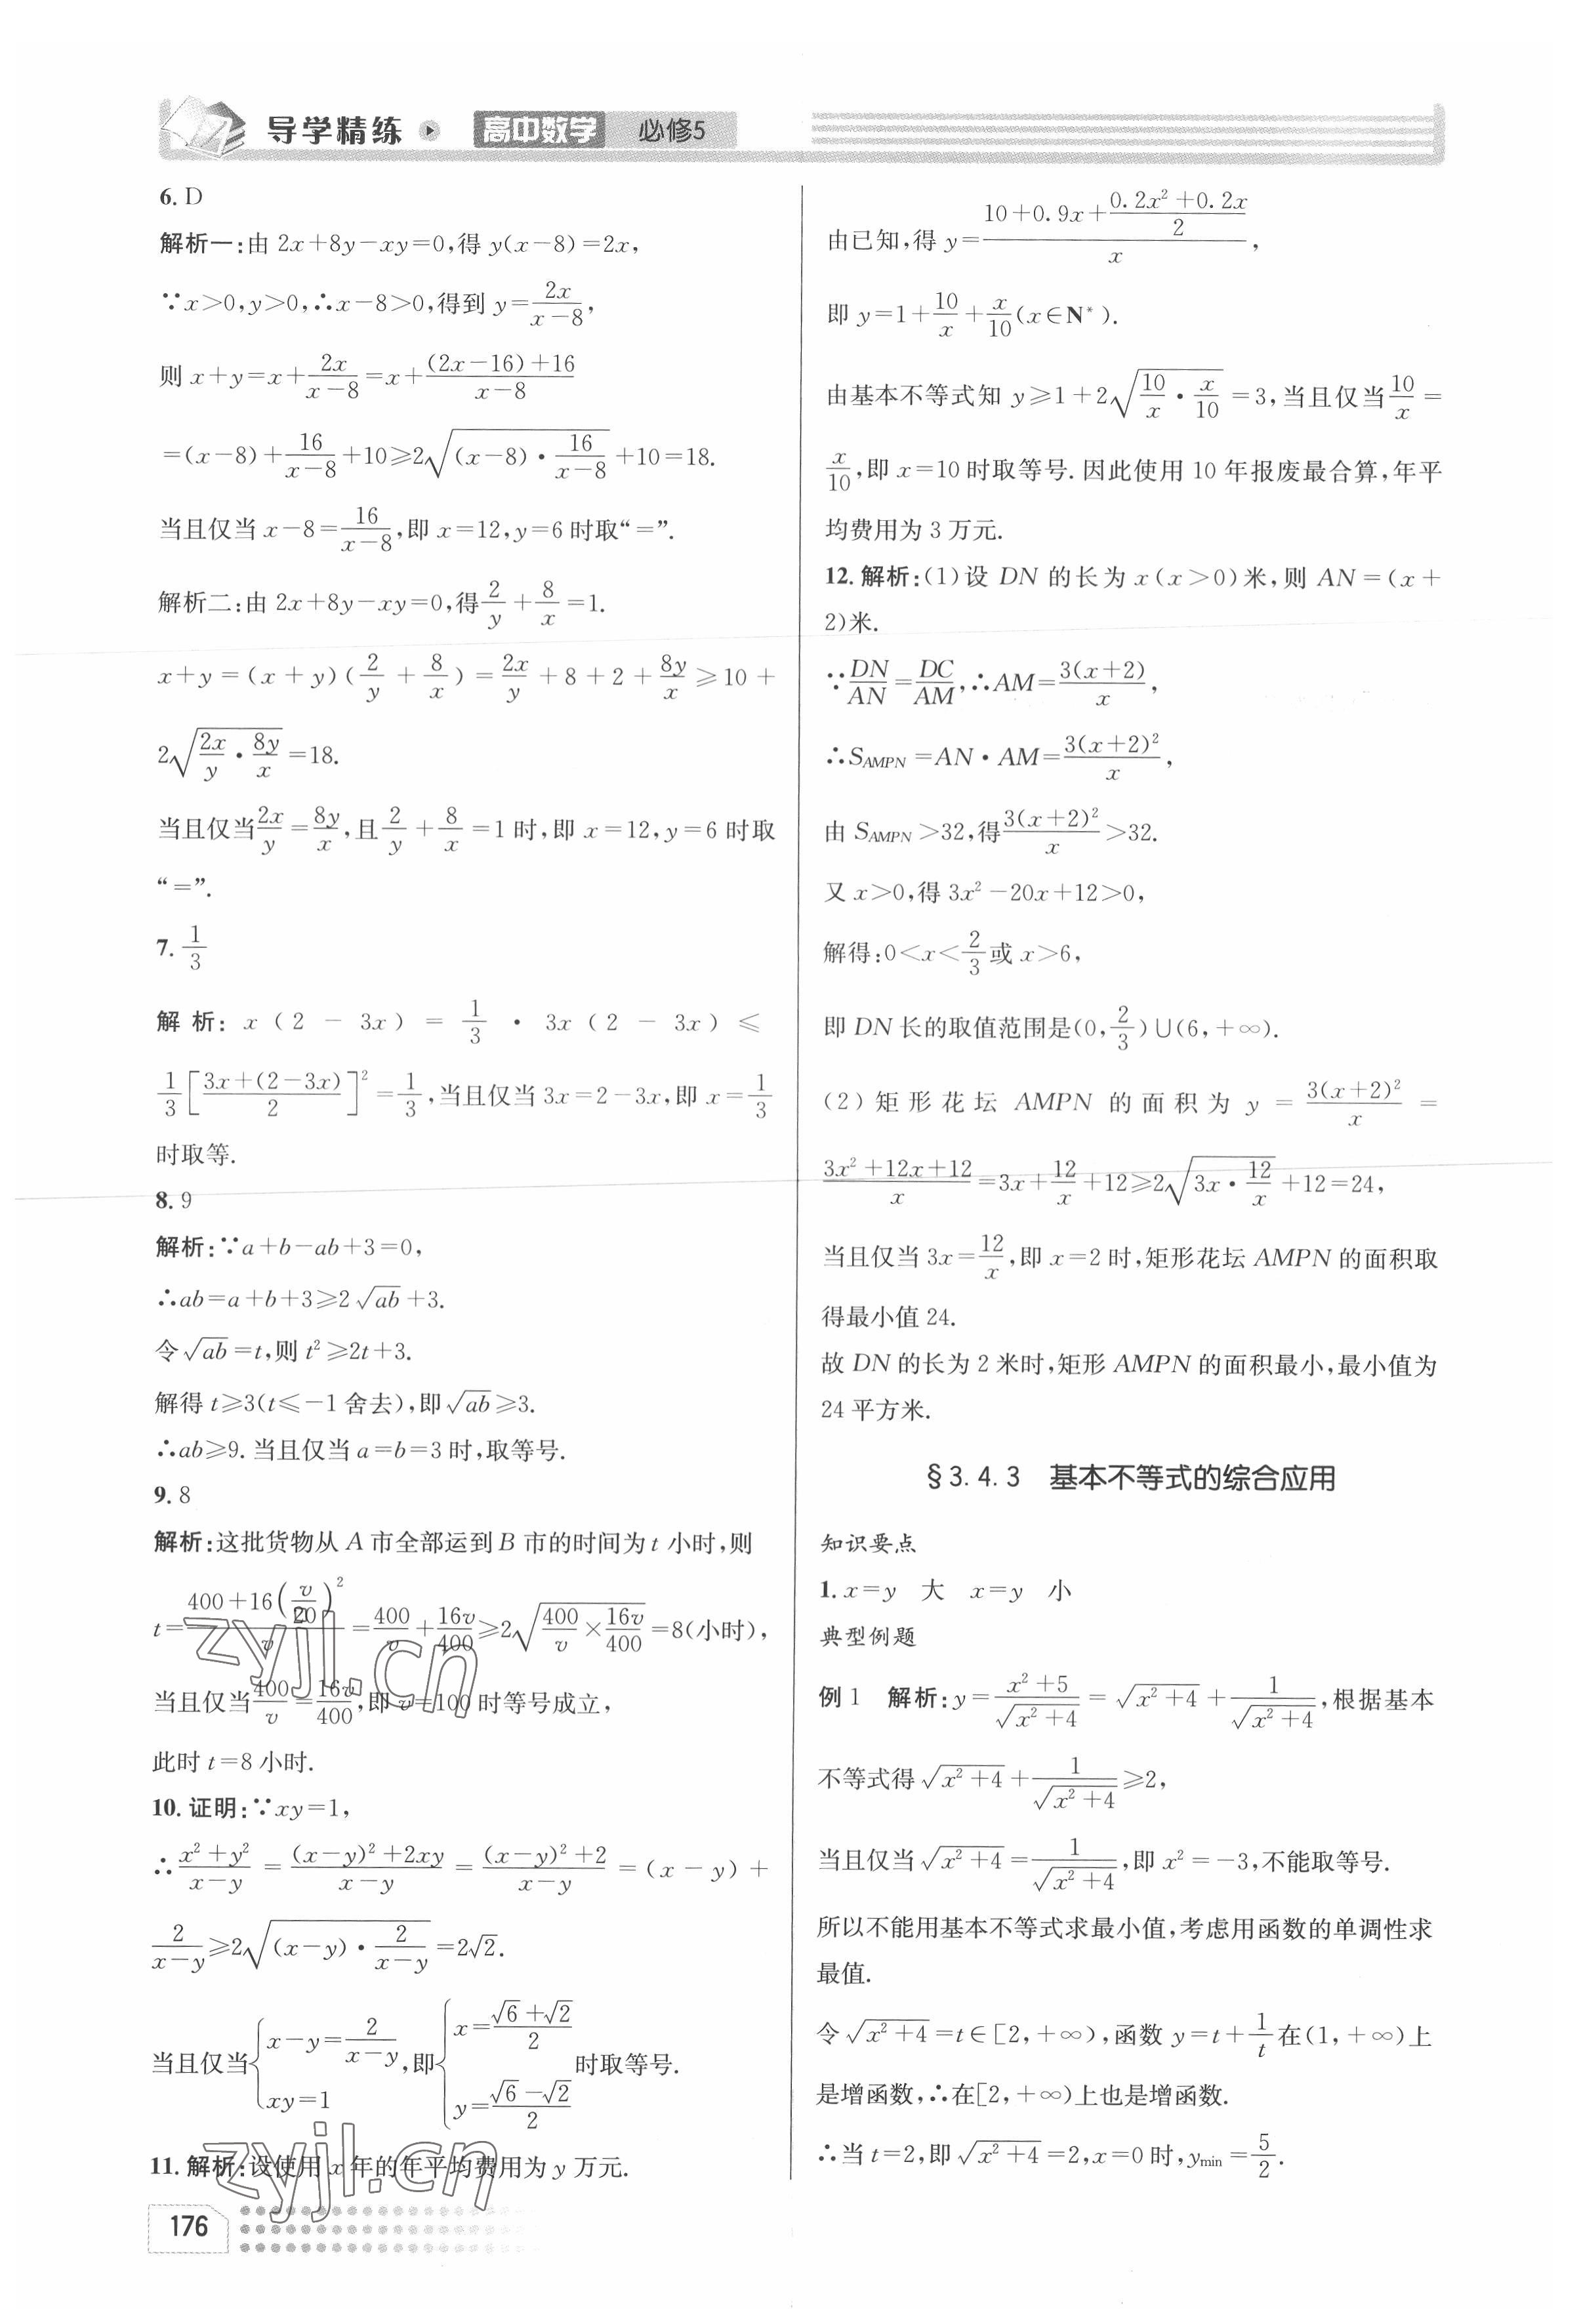 导学精练 高中数学 必修5
6. D
解析一:由 2x+8y−xy=0,得 y(x−8)=2x,
∵x>0,y>0,∴x−8>0,得到 y=\frac{2x}{x−8},
则 x+y=x+\frac{2x}{x−8}=x+\frac{(2x−16)+16}{x−8}
=(x−8)+\frac{16}{x−8}+10≥2\sqrt{(x−8)·\frac{16}{x−8}}+10=18.
当且仅当 x−8=\frac{16}{x−8},即 x=12,y=6 时取“=”.
解析二:由 2x+8y−xy=0,得\frac{2}{y}+\frac{8}{x}=1.
x+y=(x+y)(\frac{2}{y}+\frac{8}{x})=\frac{2x}{y}+8+2+\frac{8y}{x}≥10+
2\sqrt{\frac{2x}{y}·\frac{8y}{x}}=18.
当且仅当\frac{2x}{y}=\frac{8y}{x},且\frac{2}{y}+\frac{8}{x}=1 时,即 x=12,y=6 时取
“=”.
7. \frac{1}{3}
解析: x(2−3x)=\frac{1}{3}·3x(2−3x)≤
\frac{1}{3}[\frac{3x+(2−3x)}{2}]^2=\frac{1}{3},当且仅当 3x=2−3x,即 x=\frac{1}{3}
时取等.
8. 9
解析:∵a+b−ab+3=0,
∴ab=a+b+3≥2\sqrt{ab}+3.
令\sqrt{ab}=t,则 t²≥2t+3.
解得 t≥3(t≤−1 舍去),即\sqrt{ab}≥3.
∴ab≥9. 当且仅当 a=b=3 时,取等号.
9. 8
解析:这批货物从 A 市全部运到 B 市的时间为 t 小时,则
t=\frac{400+16(\frac{v}{20})^2}{v}=\frac{400}{v}+\frac{16v}{400}≥2\sqrt{\frac{400}{v}×\frac{16v}{400}}=8(小时),
当且仅当\frac{400}{v}=\frac{16v}{400},即 v=100 时等号成立,
此时 t=8 小时.
10. 证明:∵xy=1,
∴\frac{x²+y²}{x−y}=\frac{(x−y)²+2xy}{x−y}=\frac{(x−y)²+2}{x−y}=(x−y)+
\frac{2}{x−y}≥2\sqrt{(x−y)·\frac{2}{x−y}}=2\sqrt{2}.
当且仅当{x−y=\frac{2}{x−y} xy=1,即{x=\frac{\sqrt{6}+\sqrt{2}}{2} y=\frac{\sqrt{6}−\sqrt{2}}{2} 时取等号.
11. 解析:设使用 x 年的年平均费用为 y 万元.
由已知,得 y=\frac{10+0.9x+\frac{0.2x²+0.2x}{2}}{x},
即 y=1+\frac{10}{x}+\frac{x}{10}(x∈N*).
由基本不等式知 y≥1+2\sqrt{\frac{10}{x}·\frac{x}{10}}=3,当且仅当\frac{10}{x}=
\frac{x}{10},即 x=10 时取等号. 因此使用 10 年报废最合算,年平
均费用为 3 万元.
12. 解析:(1)设 DN 的长为 x(x>0)米,则 AN=(x+
2)米.
∵\frac{DN}{AN}=\frac{DC}{AM},∴AM=\frac{3(x+2)}{x},
∴S_{AMPN}=AN·AM=\frac{3(x+2)²}{x},
由 S_{AMPN}>32,得\frac{3(x+2)²}{x}>32.
又 x>0,得 3x²−20x+12>0,
解得:0<x<\frac{2}{3}或 x>6,
即 DN 长的取值范围是(0,\frac{2}{3})∪(6,+∞).
(2)矩形花坛 AMPN 的面积为 y=\frac{3(x+2)²}{x}=
\frac{3x²+12x+12}{x}=3x+\frac{12}{x}+12≥2\sqrt{3x·\frac{12}{x}}+12=24,
当且仅当 3x=\frac{12}{x},即 x=2 时,矩形花坛 AMPN 的面积取
得最小值 24.
故 DN 的长为 2 米时,矩形 AMPN 的面积最小,最小值为
24 平方米.
§3.4.3 基本不等式的综合应用
知识要点
1. x=y 大 x=y 小
典型例题
例 1 解析:y=\frac{x²+5}{\sqrt{x²+4}}=\sqrt{x²+4}+\frac{1}{\sqrt{x²+4}},根据基本
不等式得\sqrt{x²+4}+\frac{1}{\sqrt{x²+4}}≥2,
当且仅当\sqrt{x²+4}=\frac{1}{\sqrt{x²+4}},即 x²=−3,不能取等号.
所以不能用基本不等式求最小值,考虑用函数的单调性求
最值.
令\sqrt{x²+4}=t∈[2,+∞),函数 y=t+\frac{1}{t}在(1,+∞)上
是增函数,∴在[2,+∞)上也是增函数.
∴当 t=2,即\sqrt{x²+4}=2,x=0 时,y_{min}=\frac{5}{2}.
zyjl.cn
zyjl.cn
176